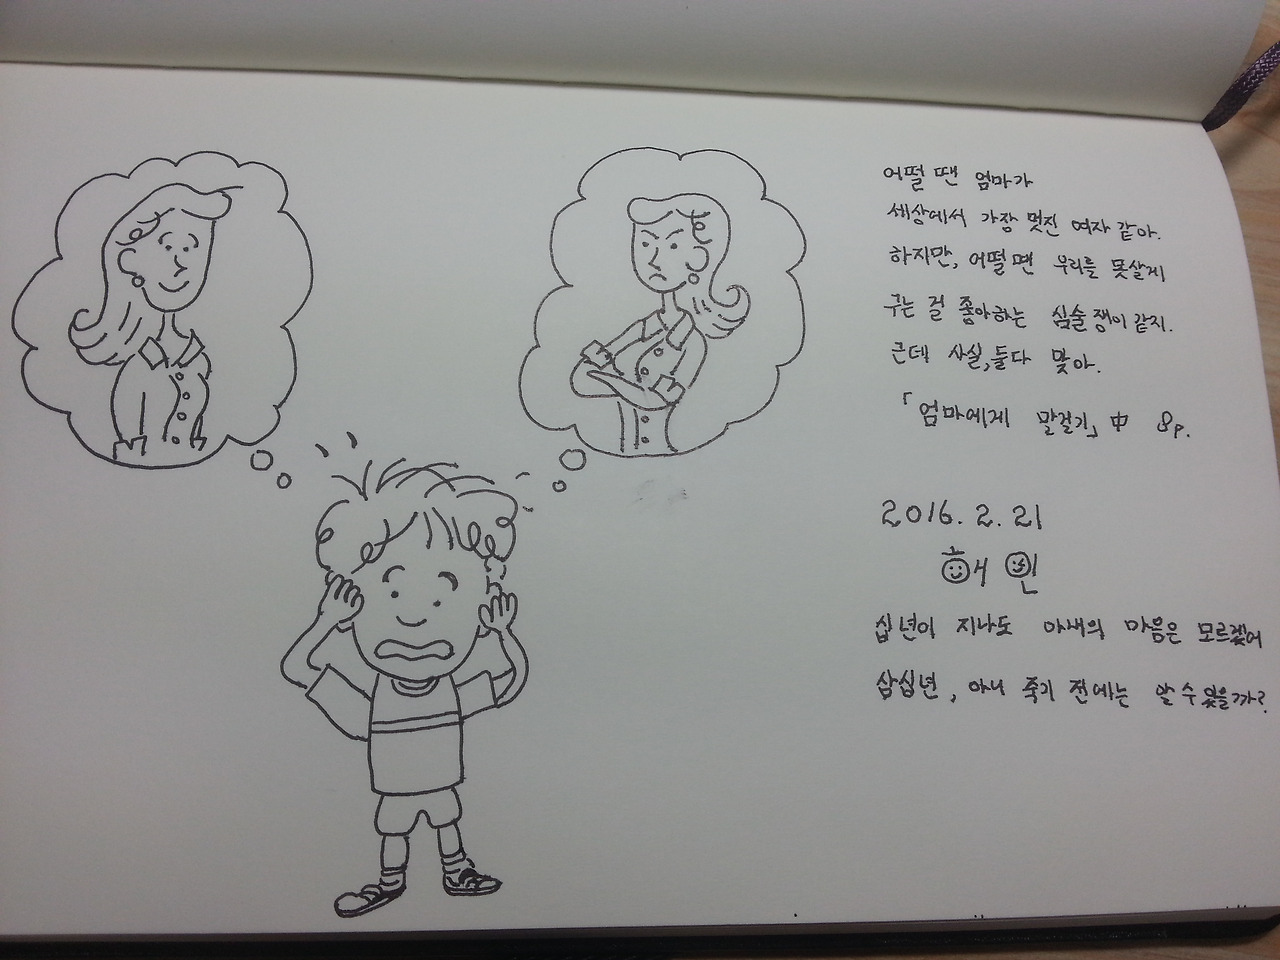 어떨 땐 엄마가
세상에서 가장 멋진 여자 같아.
하지만, 어떨 땐 우리를 못살게
구는 걸 좋아하는 심술쟁이 같지.
근데 사실, 둘다 맞아.
「엄마에게 말걸기」 中 8p.
2016. 2. 21
해인
십년이 지나도 아내의 마음은 모르겠어
삼십년, 아니 죽기 전에는 알 수 있을까?